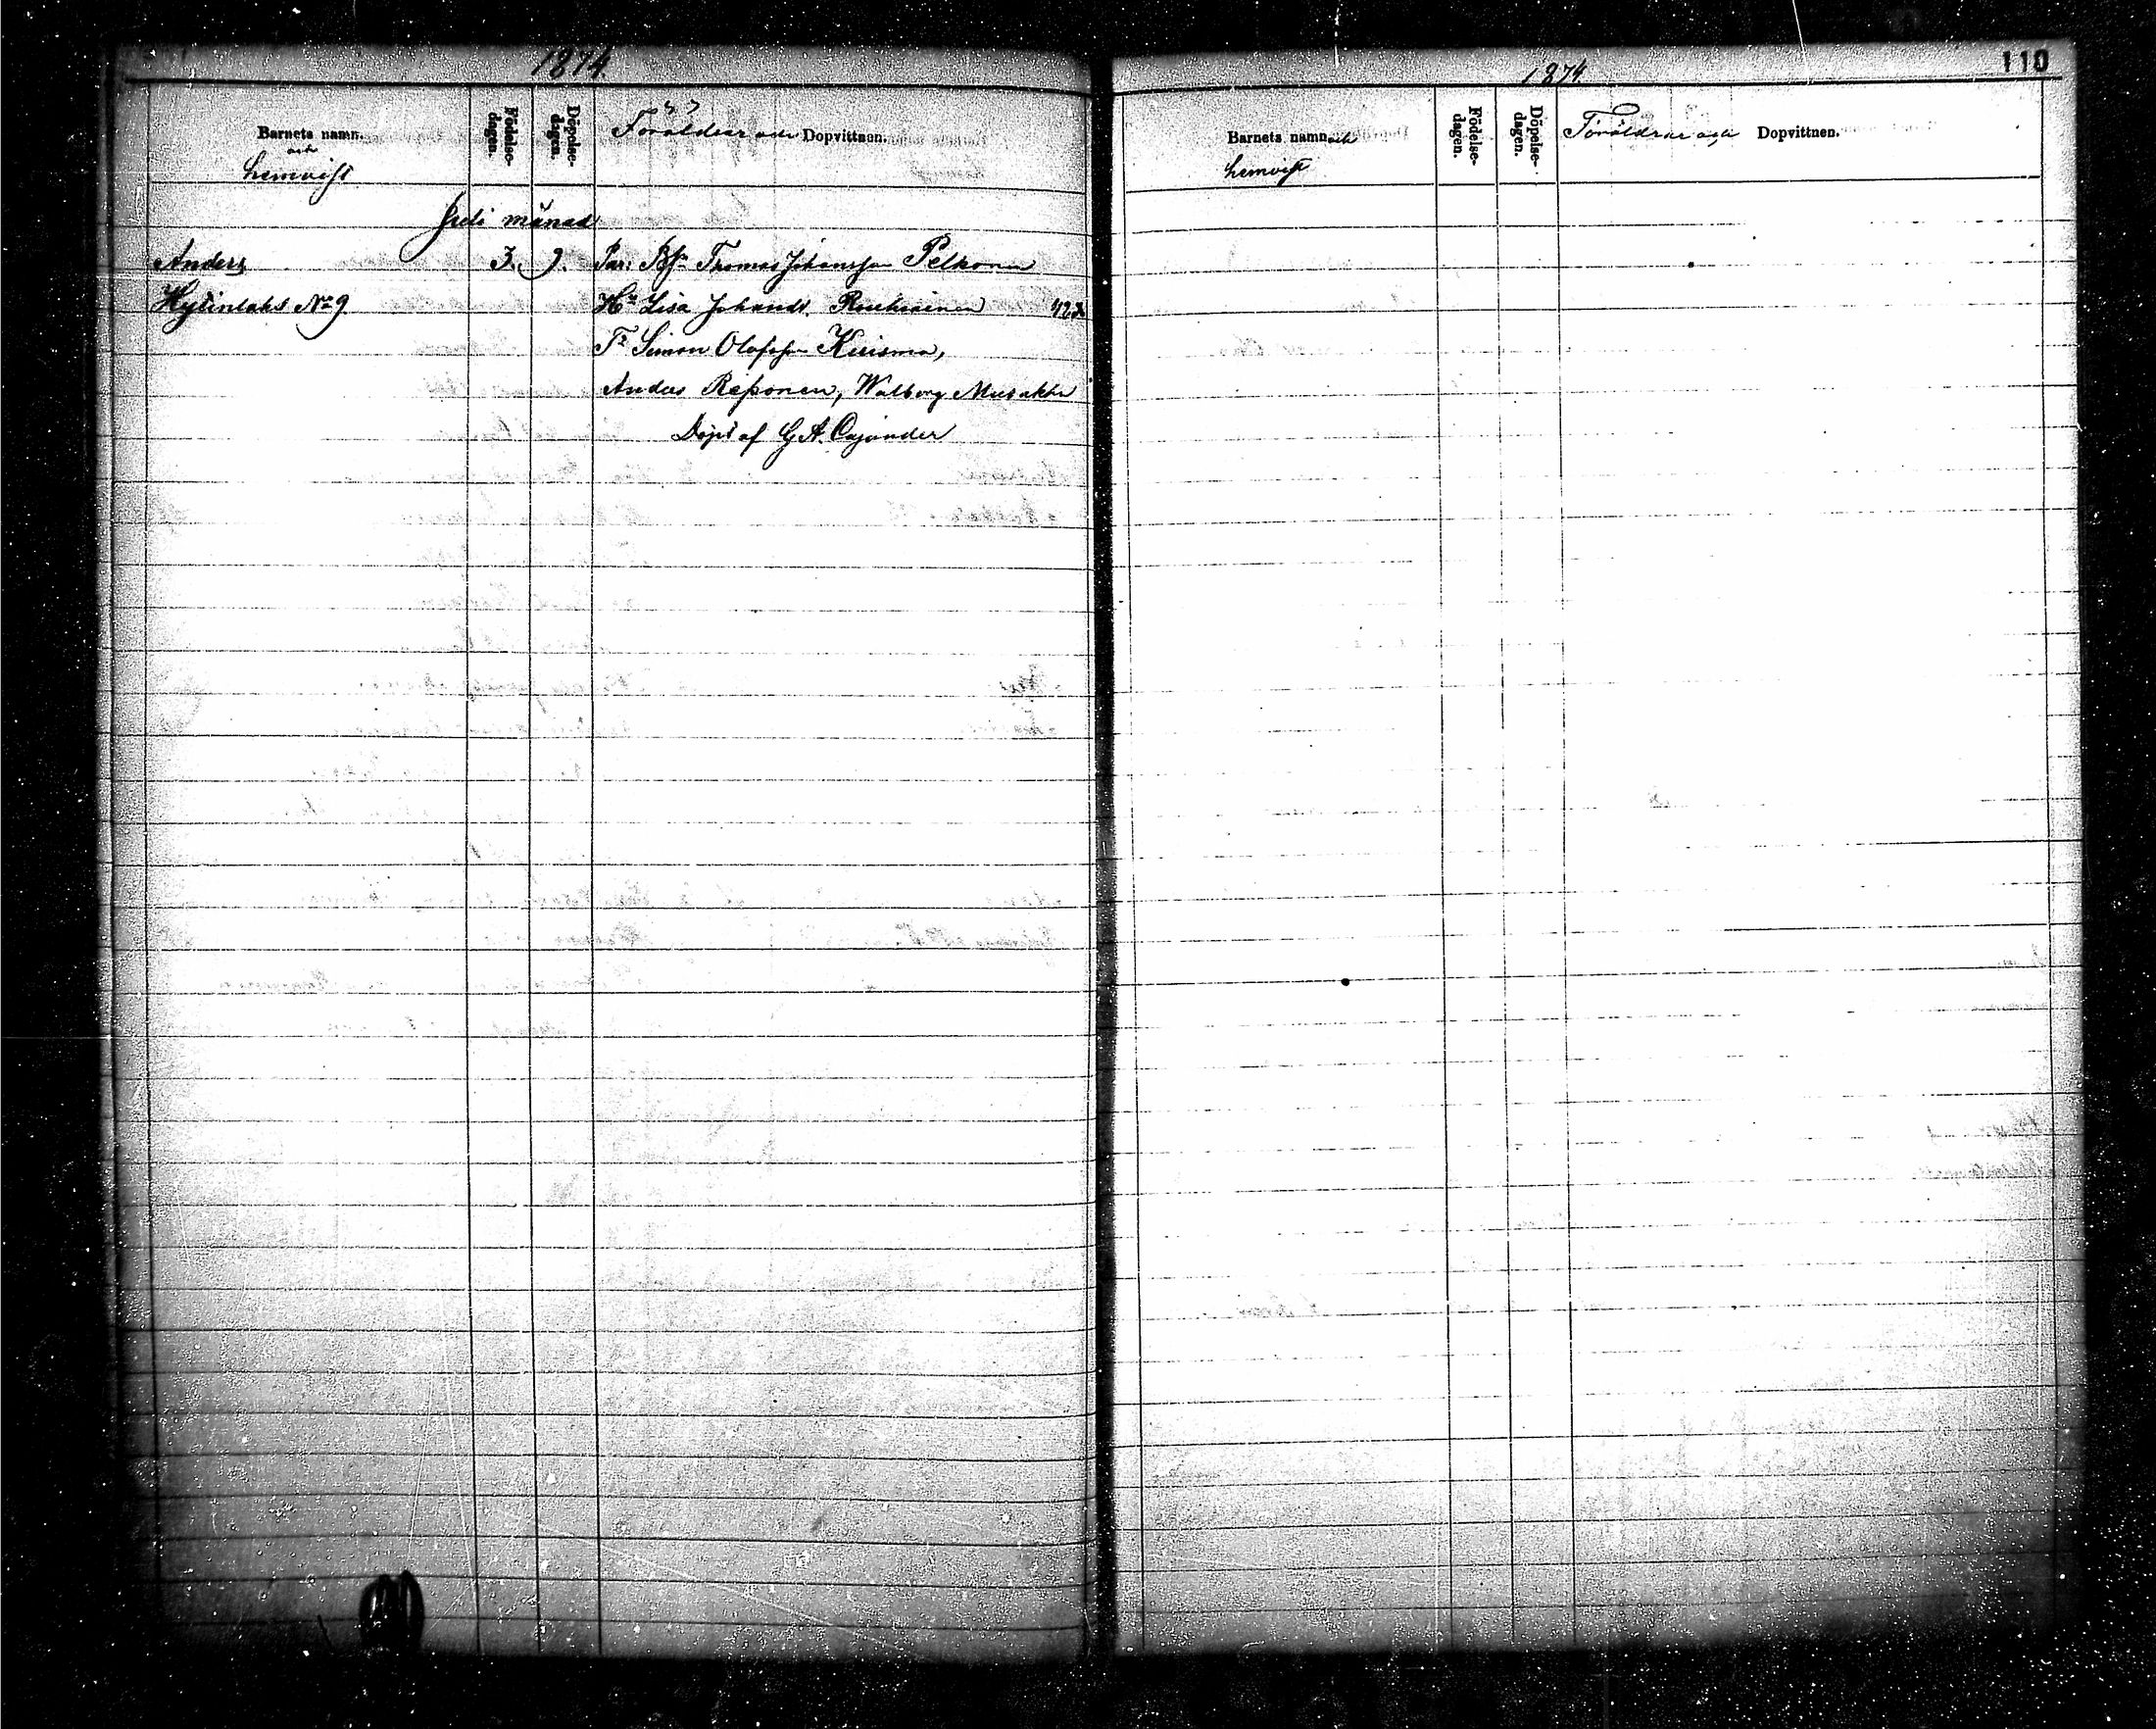 1874.
Barnets namn.
och
hemvist
Födelse-
dagen.
Döpelse-
dagen.
Föräldrar och Dopvittnen.
Juli månad
Anders 3. 9. Par: Thomas Johansson Pelkonen
No 9 Hu Lisa Johansdr 422
Simon Olofsson
Anders Reponen, Walborg
Döpt af G A. Cajander
110
1874.
Barnets namn och
hemvist
Födelse-
dagen.
Döpelse-
dagen.
Föräldrar och Dopvittnen.